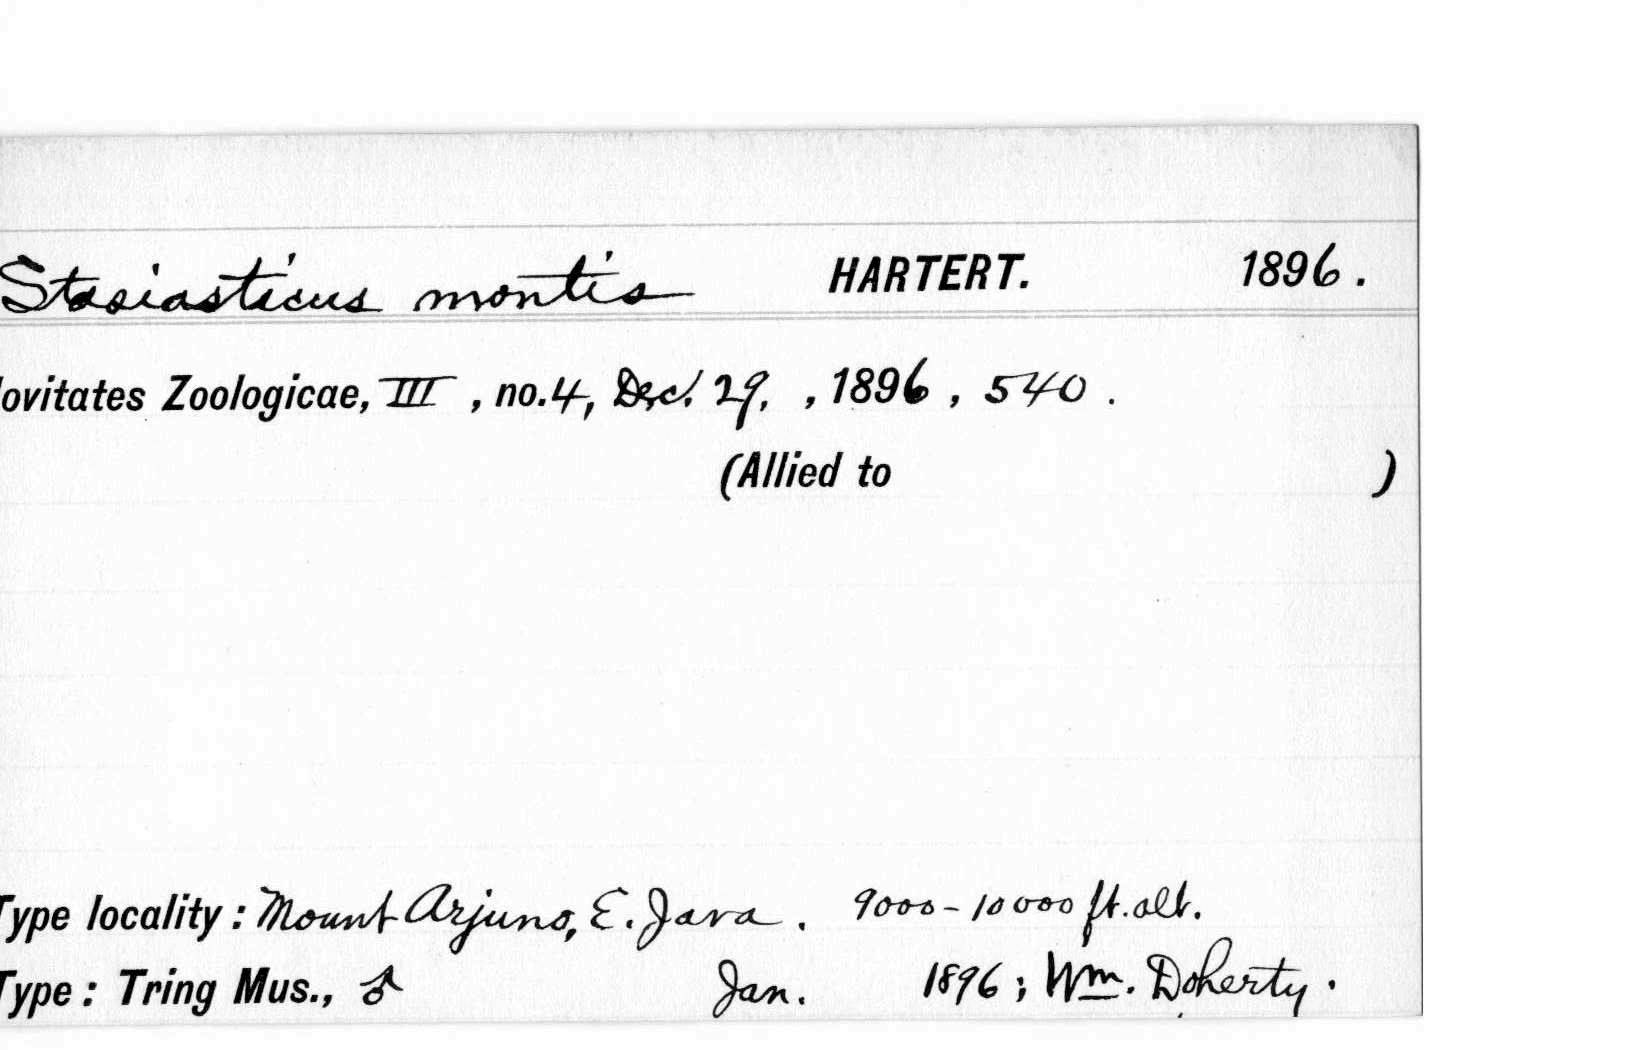 Stasiasticus montis HARTERT. 1896.
ovitates Zoologicae, III, no.4, Dec. 29, , 1896, 540.
(Allied to )
Type locality: Mount Arjuno, E. Java. 9000-10000 ft. alt.
Type: Tring Mus., ♂ Jan. 1896; Wm. Doherty.